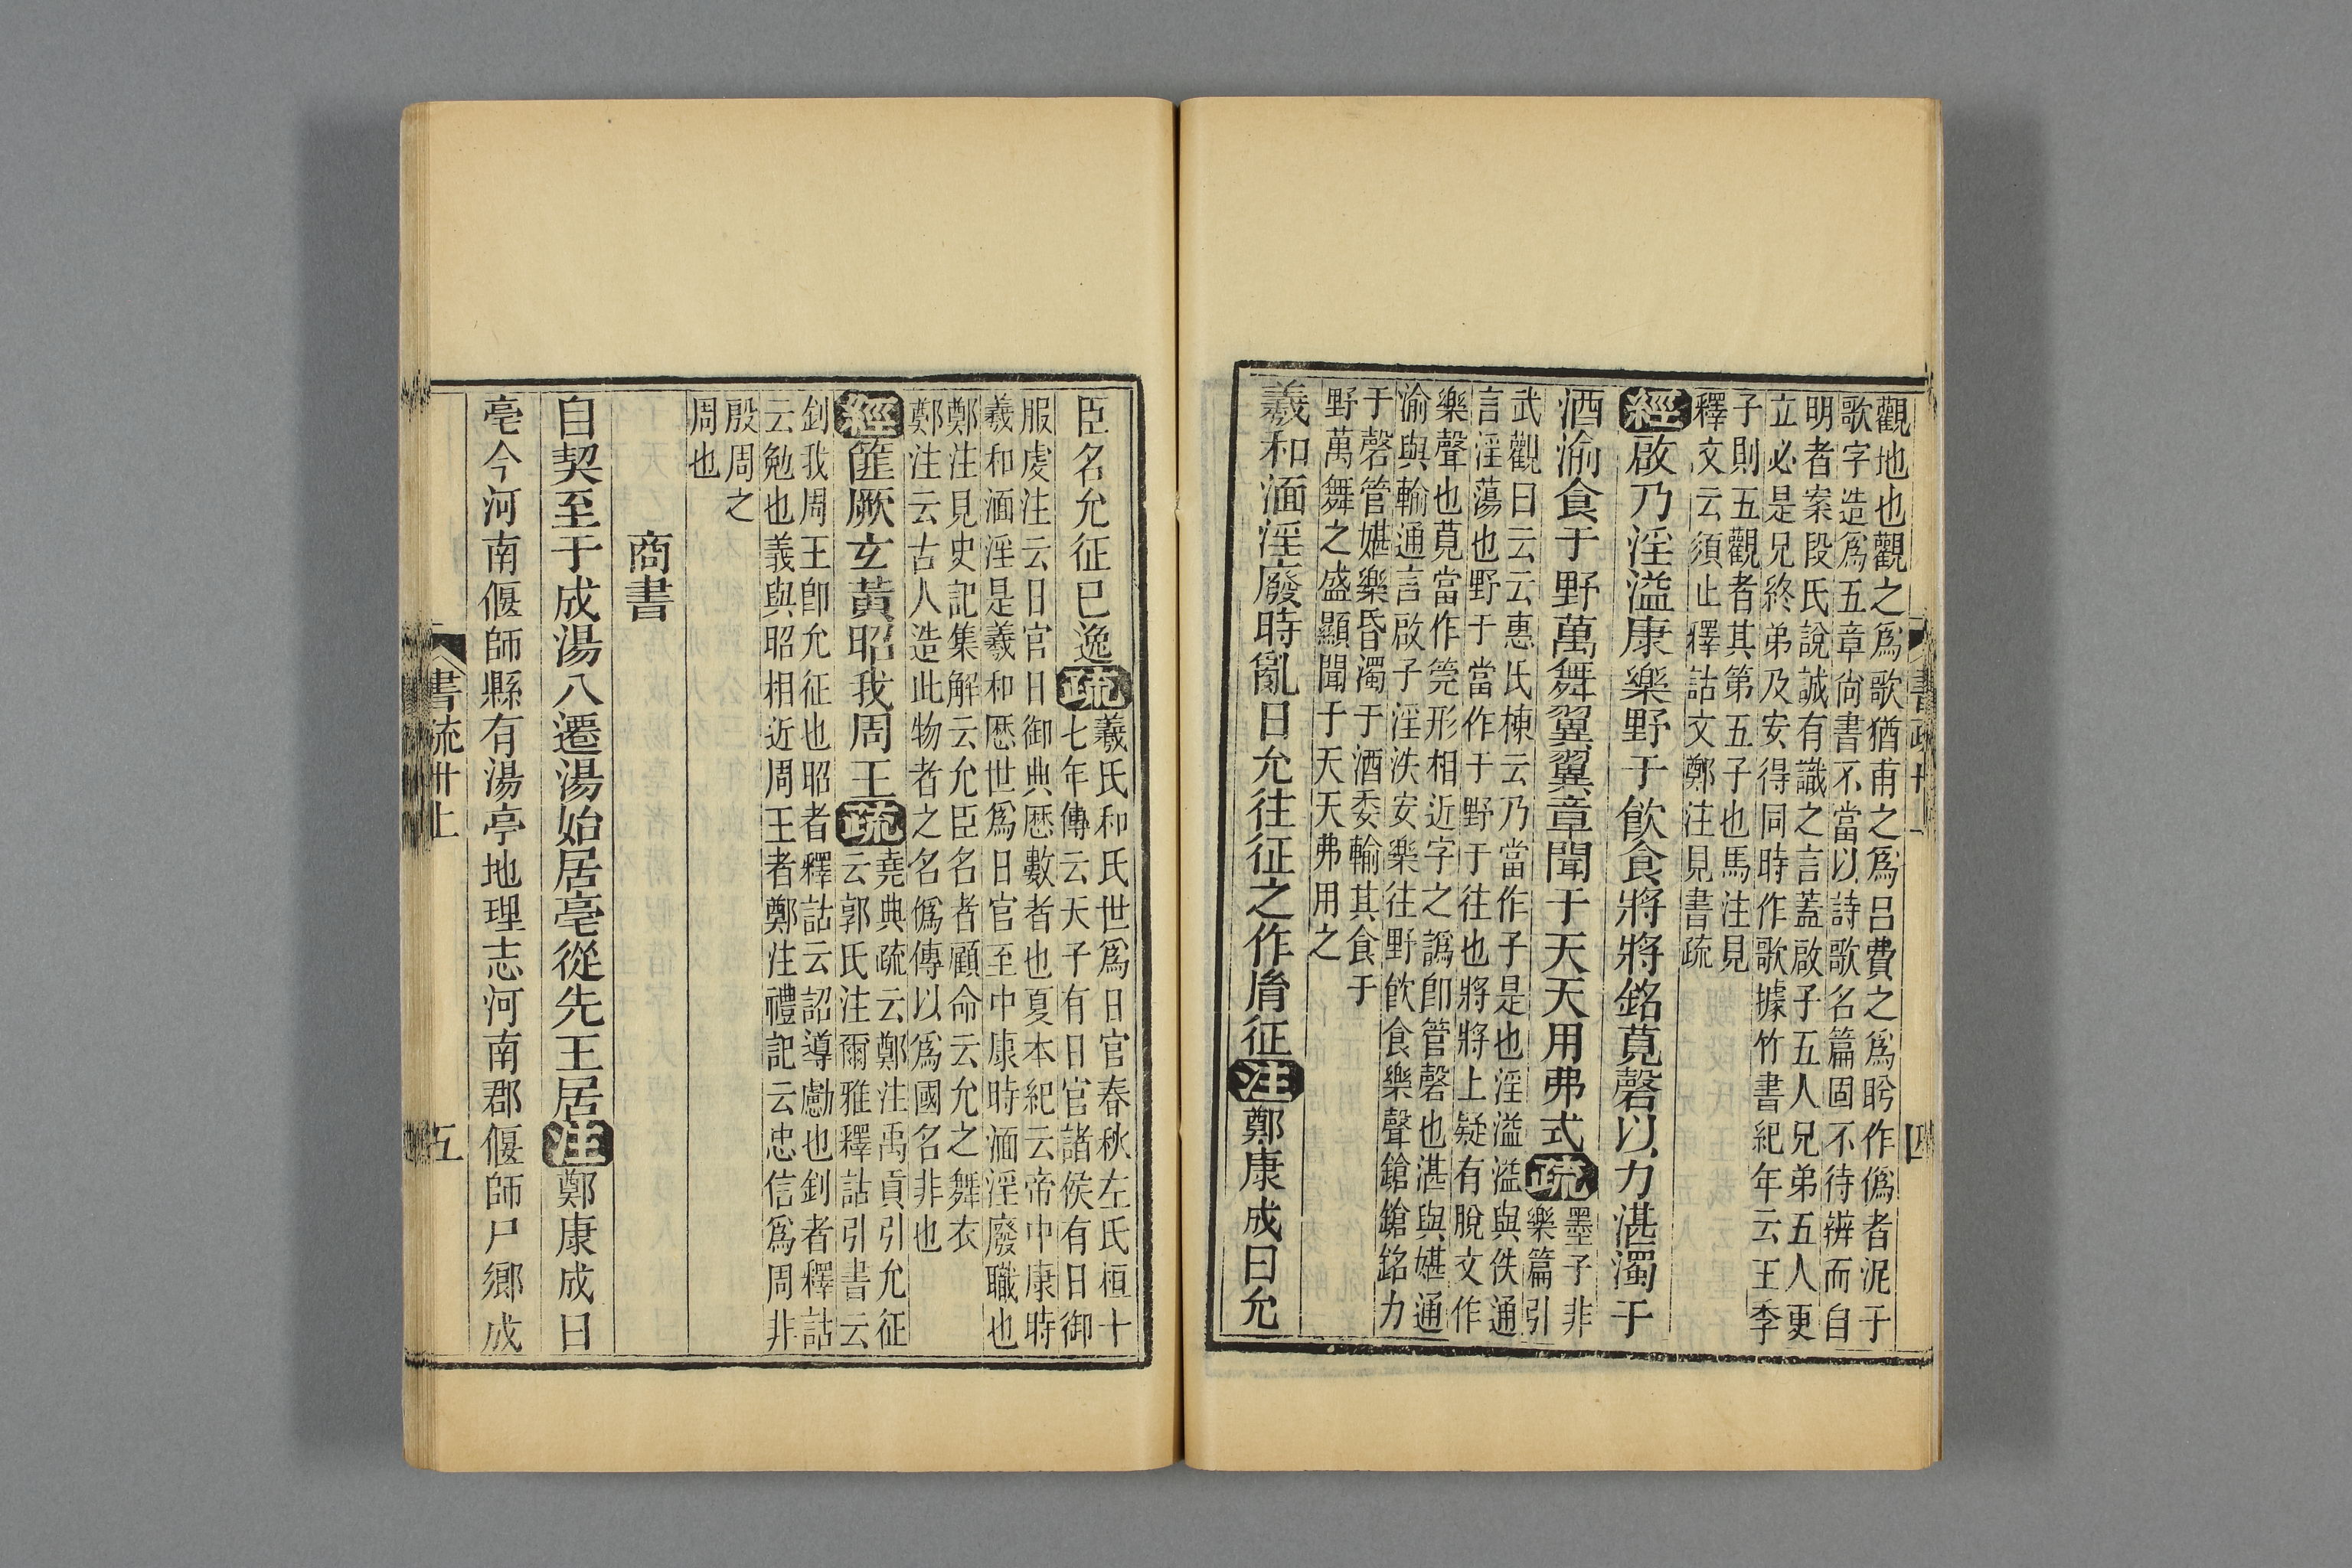 觀地也觀之爲歌猶甫之爲呂費之爲肸作僞者泥于
歌字造爲五章尙書不當以詩歌名篇固不待辨而自
明者案段氏說誠有識之言蓋啟子五人兄弟五人更
立必是兄終弟及安得同時作歌據竹書紀年云王季
子則五觀者其第五子也馬注見
釋文云須止釋詁文鄭注見書疏
經啟乃淫溢康樂野于飮食將將銘莧磬以力湛濁于
酒渝食于野萬舞翼翼章聞于天天用弗式疏
墨子非
樂篇引
武觀曰云云惠氏棟云乃當作子是也淫溢溢與佚通
言淫蕩也野于當作于野于往也將將上疑有脫文作
樂聲也莧當作筦形相近字之譌卽管磬也湛與媅通
渝與輸通言啟子淫泆安樂往野飮食樂聲鎗鎗銘力
于磬管媅樂昏濁于酒委輸其食于
野萬舞之盛顯聞于天天弗用之
羲和湎淫廢時亂日允往征之作胤征注鄭康成曰允
書疏卅上
四
臣名允征巳逸疏
羲氏和氏世爲日官春秋左氏桓十
七年傳云天子有日官諸侯有日御
服虔注云日官日御典厯數者也夏本紀云帝中康時
羲和湎淫是羲和厯世爲日官至中康時湎淫廢職也
鄭注見史記集解云允臣名者顧命云允之舞衣
鄭注云古人造此物者之名僞傳以爲國名非也
經篚厥玄黃昭我周王疏
堯典疏云鄭注禹貢引允征
云郭氏注爾雅釋詁引書云
釗我周王卽允征也昭者釋詁云詔導勴也釗者釋詁
云勉也義與昭相近周王者鄭注禮記云忠信爲周非
殷周之
周也
商書
自契至于成湯八遷湯始居亳從先王居注鄭康成曰
亳今河南偃師縣有湯亭地理志河南郡偃師尸鄉成
書疏卅上
五